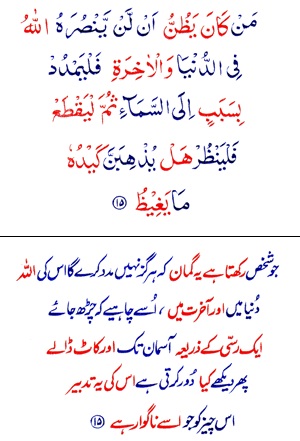 مَنْ كَانَ يَظُنُّ اَنْ لَّنْ يَّنْصُرَهُ اللّٰهُ
فِى الدُّنْيَا وَالْاٰخِرَةِ فَلْيَمْدُدْ
بِسَبَبٍ اِلَى السَّمَآءِ ثُمَّ لْيَقْطَعْ
فَلْيَنْظُرْ هَلْ يُذْهِبَنَّ كَيْدُهٗ
مَا يَغِيْظُ ﴿۱۵﴾
جو شخص رکھتا ہے یہ گمان کہ ہرگز نہیں مدد کرے گا اس کی اللہ
دُنیا میں اور آخرت میں ، اُسے چاہیے کہ چڑھ جائے
ایک رسّی کے ذریعہ آسمان تک اور کاٹ ڈالے
پھر دیکھے کیا دُور کرتی ہے اس کی یہ تدبیر
اس چیز کو جو اسے ناگوار ہے ﴿۱۵﴾